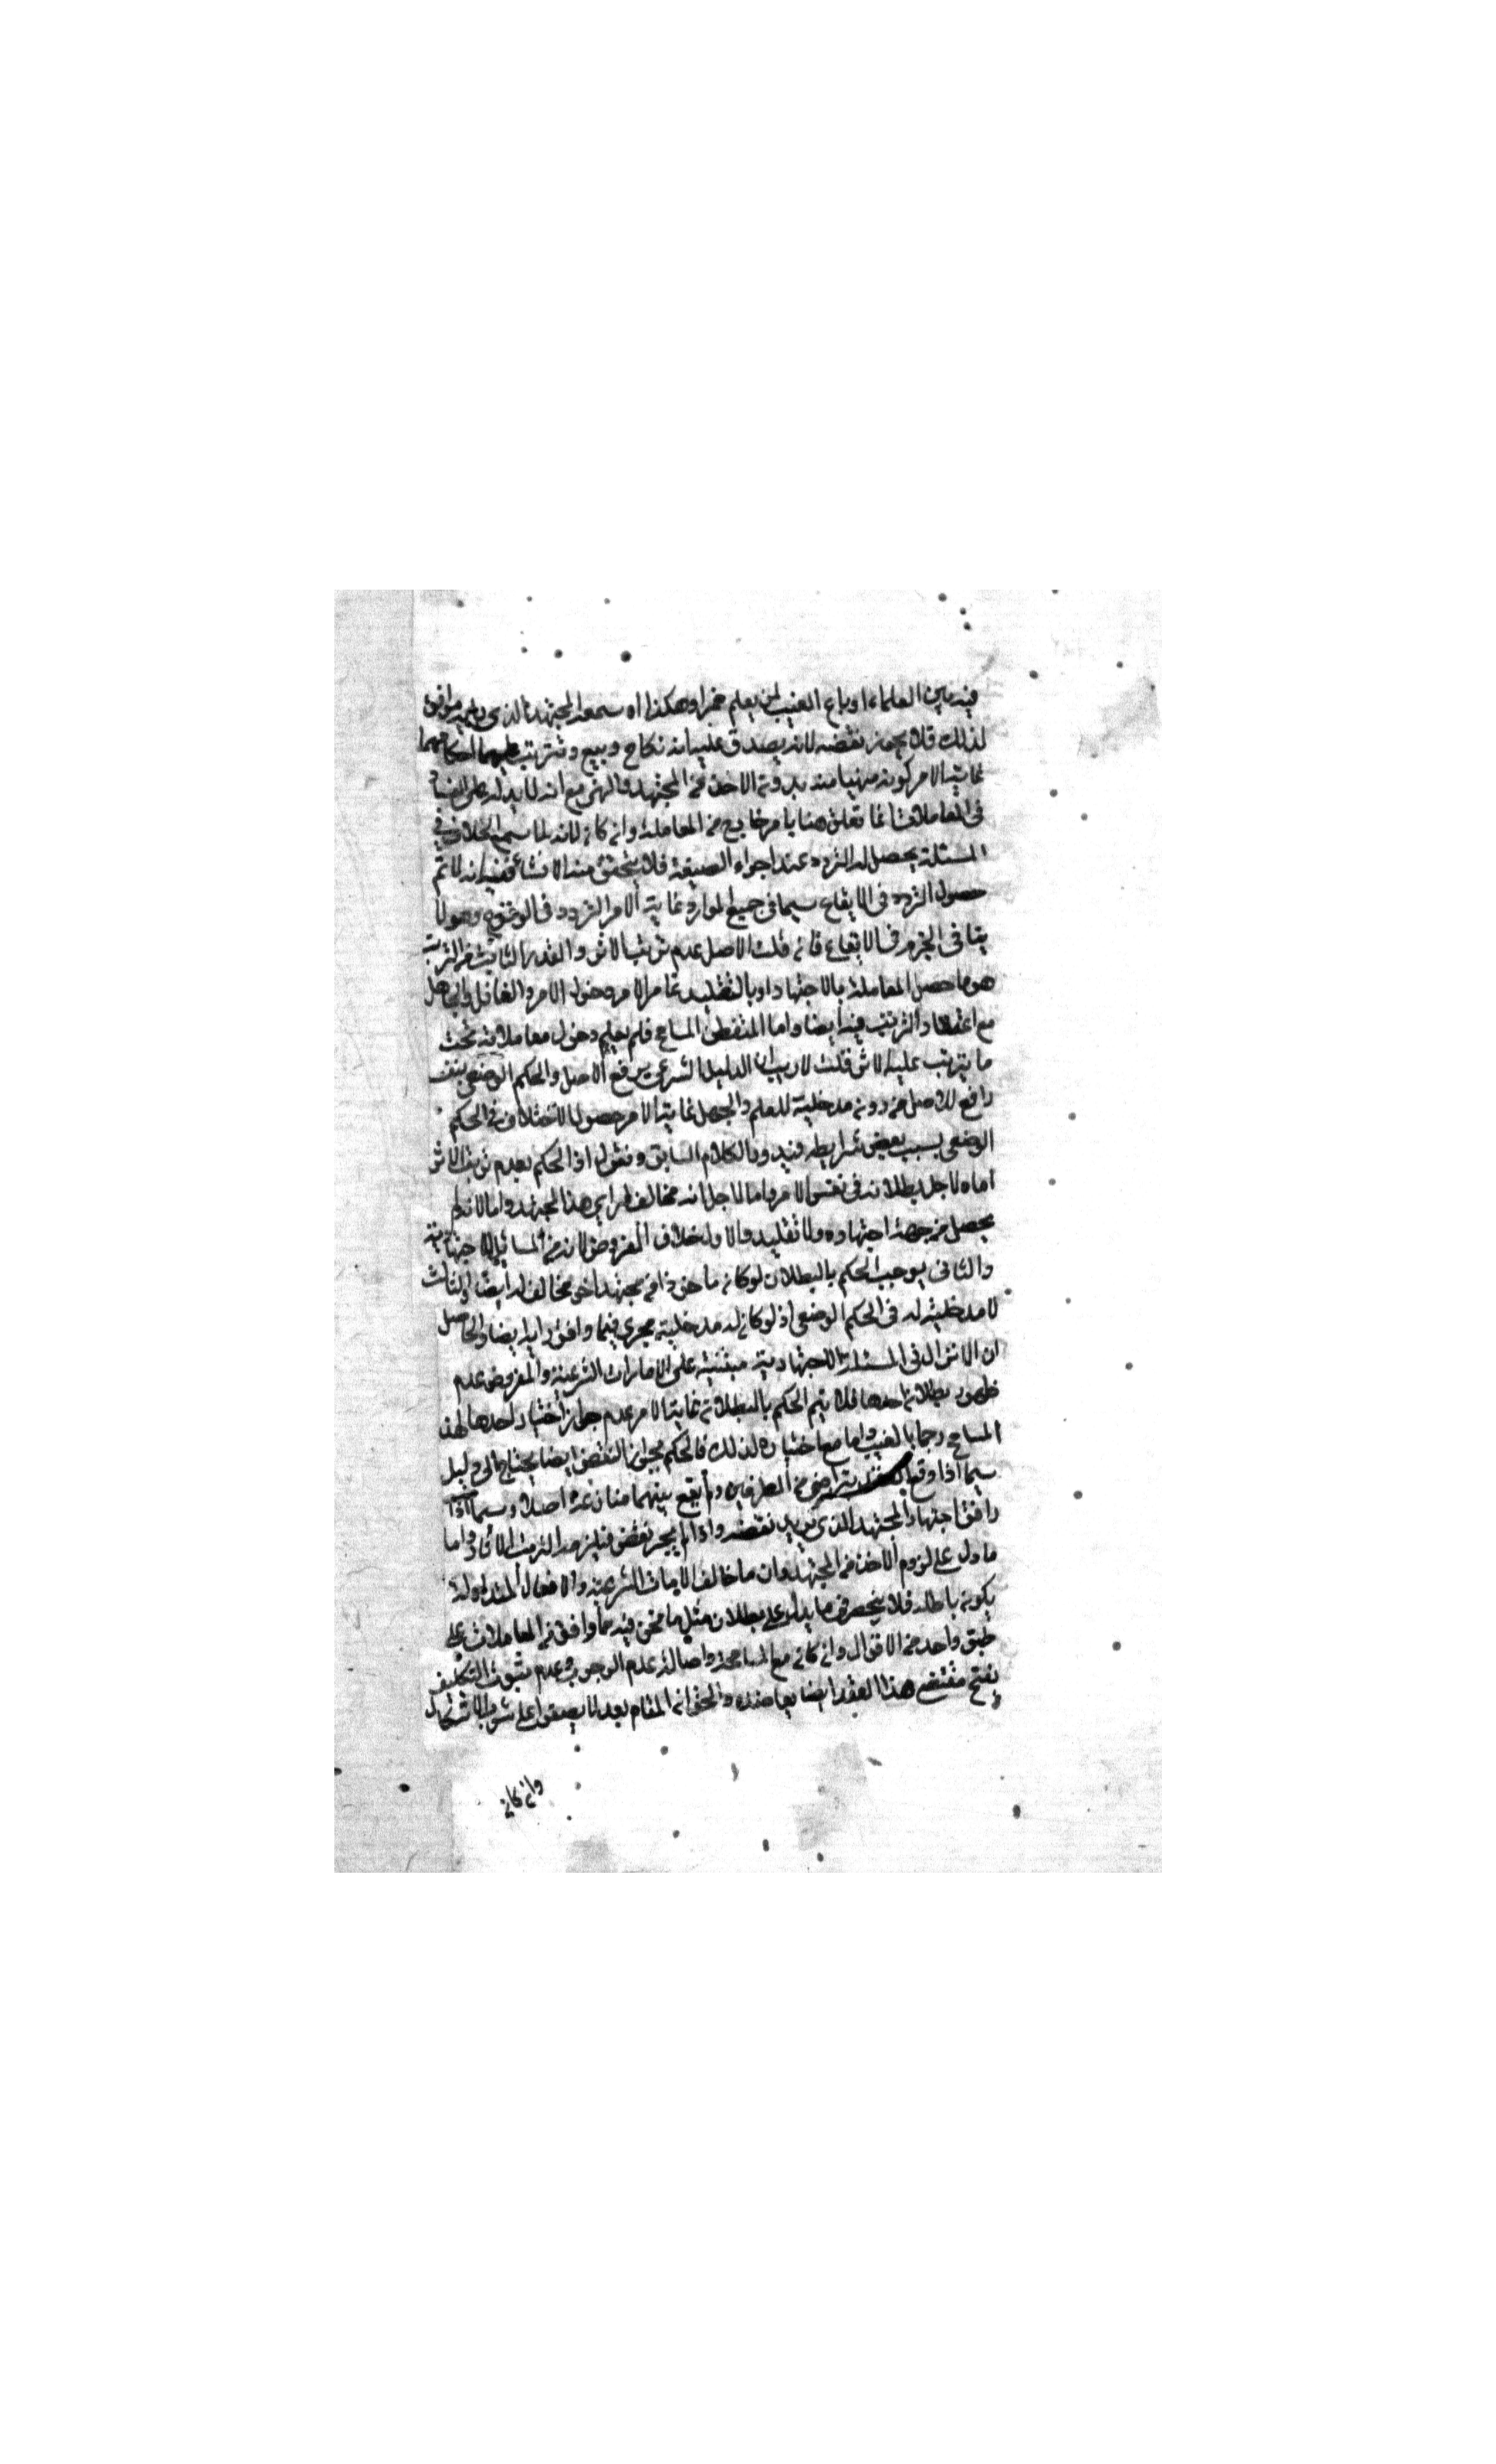 فيه بين العلماء او باع العنب لمن يعلم خمرا وهكذا سمعه المجتهد الذي موافق
لذلك فلا يجوز نقضه لانه يصدق عليه انه نكاح وبيع وتترتب عليهما احكامهما
غاية الامر كونه منهيا عنه بدون الاخذ من المجتهد والنهي مع انه لا يدل على الفساد
في المعاملات انما تعلق هنا بامر خارج من المعاملة وان كان لانه لما سمع الخلاف في
المسئلة يحصل له التردد عند اجراء الصيغة فلا يتحقق منه الانشاء ففيه انه لا تم
حصول التردد في الايقاع سيما في جميع الموارد غاية الامر التردد في الوقوع وهو لا
ينافي الجزم في الايقاع فان قلت الاصل عدم ترتب الاثر والقدر الثابت من الترتب
هو ما حصل المعاملة بالاجتهاد او بالتقليد غاية الامر دخول الامر والغافل والجاهل
مع اعتقاد الترتب فيه ايضا واما المتفطن المسامح فلم يعلم دخول معاملاته تحت
ما يترتب عليه الاثر قلت لا ريب ان الدليل الشرعي يرفع الاصل والحكم الوضعي بنفسه
رافع للاصل من دون مدخلية للعلم والجهل غاية الامر حصول الاختلاف في الحكم
الوضعي بسبب بعض شرايطه فيدور الكلام السابق ونقول اذا الحكم بعدم ترتب الاثر
اما لاجل بطلانه في نفس الامر واما لاجل انه مخالف لراي هذا المجتهد واما لانه لم
يحصل من جهة اجتهاده ولا تقليد والاول خلاف المفروض لانه من المسائل الاجتهادية
والثاني يوجب الحكم بالبطلان لو كان ماخوذا من مجتهد اخر مخالف له ايضا والثالث
لا مدخلية له في الحكم الوضعي اذ لو كان له مدخلية يجري فيما وافق رايه ايضا والحاصل
ان الاقوال في المسئلة الاجتهادية مبتنية على الامارات الشرعية والمفروض عدم
ظهور بطلان احدها فلا يتم الحكم بالبطلان غاية الامر عدم جواز اختيار احدها لهذا
المسامح رجما بالغيب واما مع اختياره لذلك فالحكم بجواز النقض ايضا يحتاج الى دليل
سيما اذا وقع بتراض من الطرفين ولم يقع بينهما منازعة اصلا وسيما اذا
وافق اجتهاد المجتهد الذي يريد نقضه واذا لم يجز نقض فيلزمه الترتب الاثار واما
ما دل على لزوم الاخذ من المجتهد وان ما خالف الايات الشرعية والافعال المتداولة
يكون باطلا فلا ينحصر في ما يدل على بطلان مثل ما نحن فيه مما وافق من المعاملات على
طبق واحد من الاقوال وان كان مع المسامحة واصالة عدم الوجوب وعدم ثبوت التكليف
بفتح مقتضى هذا العقد ايضا يعاضده والحق ان المقام بعد لا يصفو على شوب الاشكال
وان كان